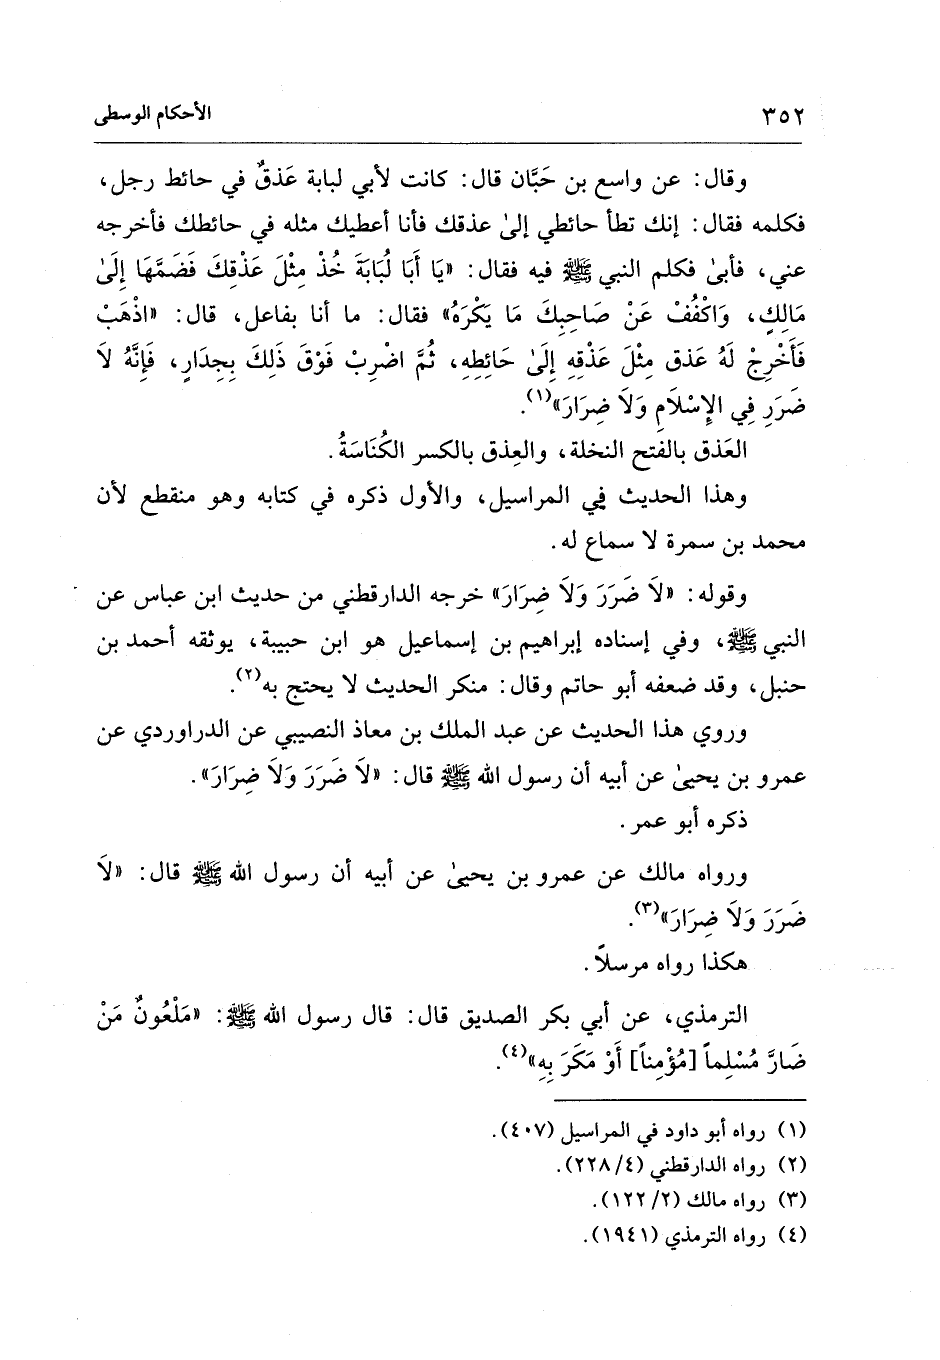 ٣٥٢ الأحكام الوسطى
وقال: عن واسع بن حَبَّان قال: كانت لأبي لبابة عَذقٌ في حائط رجل،
فكلمه فقال: إنك تطأ حائطي إلىٰ عذقك فأنا أعطيك مثله في حائطك فأخرجه
عني، فأبىٰ فكلم النبي ﷺ فيه فقال: «يَا أَبَا لُبَابَةَ خُذْ مِثْلَ عَذْقِكَ فَضَمَّهَا إِلَىٰ
مَالِكٍ، وَاكْفُفْ عَنْ صَاحِبِكَ مَا يَكْرَهُ» فقال: ما أنا بفاعل، قال: «اذْهَبْ
فَأَخْرِجْ لَهُ عَذق مِثْلَ عَذْقِهِ إِلَىٰ حَائِطِهِ، ثُمَّ اضْرِبْ فَوْقَ ذَلِكَ بِجِدَارٍ، فَإِنَّهُ لاَ
ضَرَرِ فِي الإِسْلاَمِ وَلاَ ضِرَارَ»(١).
العَذق بالفتح النخلة، والعِذق بالكسر الكُنَاسَةُ.
وهذا الحديث في المراسيل، والأول ذكره في كتابه وهو منقطع لأن
محمد بن سمرة لا سماع له.
وقوله: «لاَ ضَرَرَ وَلاَ ضِرَارَ» خرجه الدارقطني من حديث ابن عباس عن
النبي ﷺ، وفي إسناده إبراهيم بن إسماعيل هو ابن حبيبة، يوثقه أحمد بن
حنبل، وقد ضعفه أبو حاتم وقال: منكر الحديث لا يحتج به(٢).
وروي هذا الحديث عن عبد الملك بن معاذ النصيبي عن الدراوردي عن
عمرو بن يحيىٰ عن أبيه أن رسول الله ﷺ قال: «لاَ ضَرَرَ وَلاَ ضِرَارَ».
ذكره أبو عمر.
ورواه مالك عن عمرو بن يحيىٰ عن أبيه أن رسول الله ﷺ قال: «لاَ
ضَرَرَ وَلاَ ضِرَارَ»(٣).
هكذا رواه مرسلاً.
الترمذي، عن أبي بكر الصديق قال: قال رسول الله ﷺ: «مَلْعُونٌ مَنْ
ضَارَّ مُسْلِماً [مُؤْمِناً] أَوْ مَكَرَ بِهِ»(٤).
(١) رواه أبو داود في المراسيل (٤٠٧).
(٢) رواه الدارقطني (٤/ ٢٢٨).
(٣) رواه مالك (٢/ ١٢٢).
(٤) رواه الترمذي (١٩٤١).